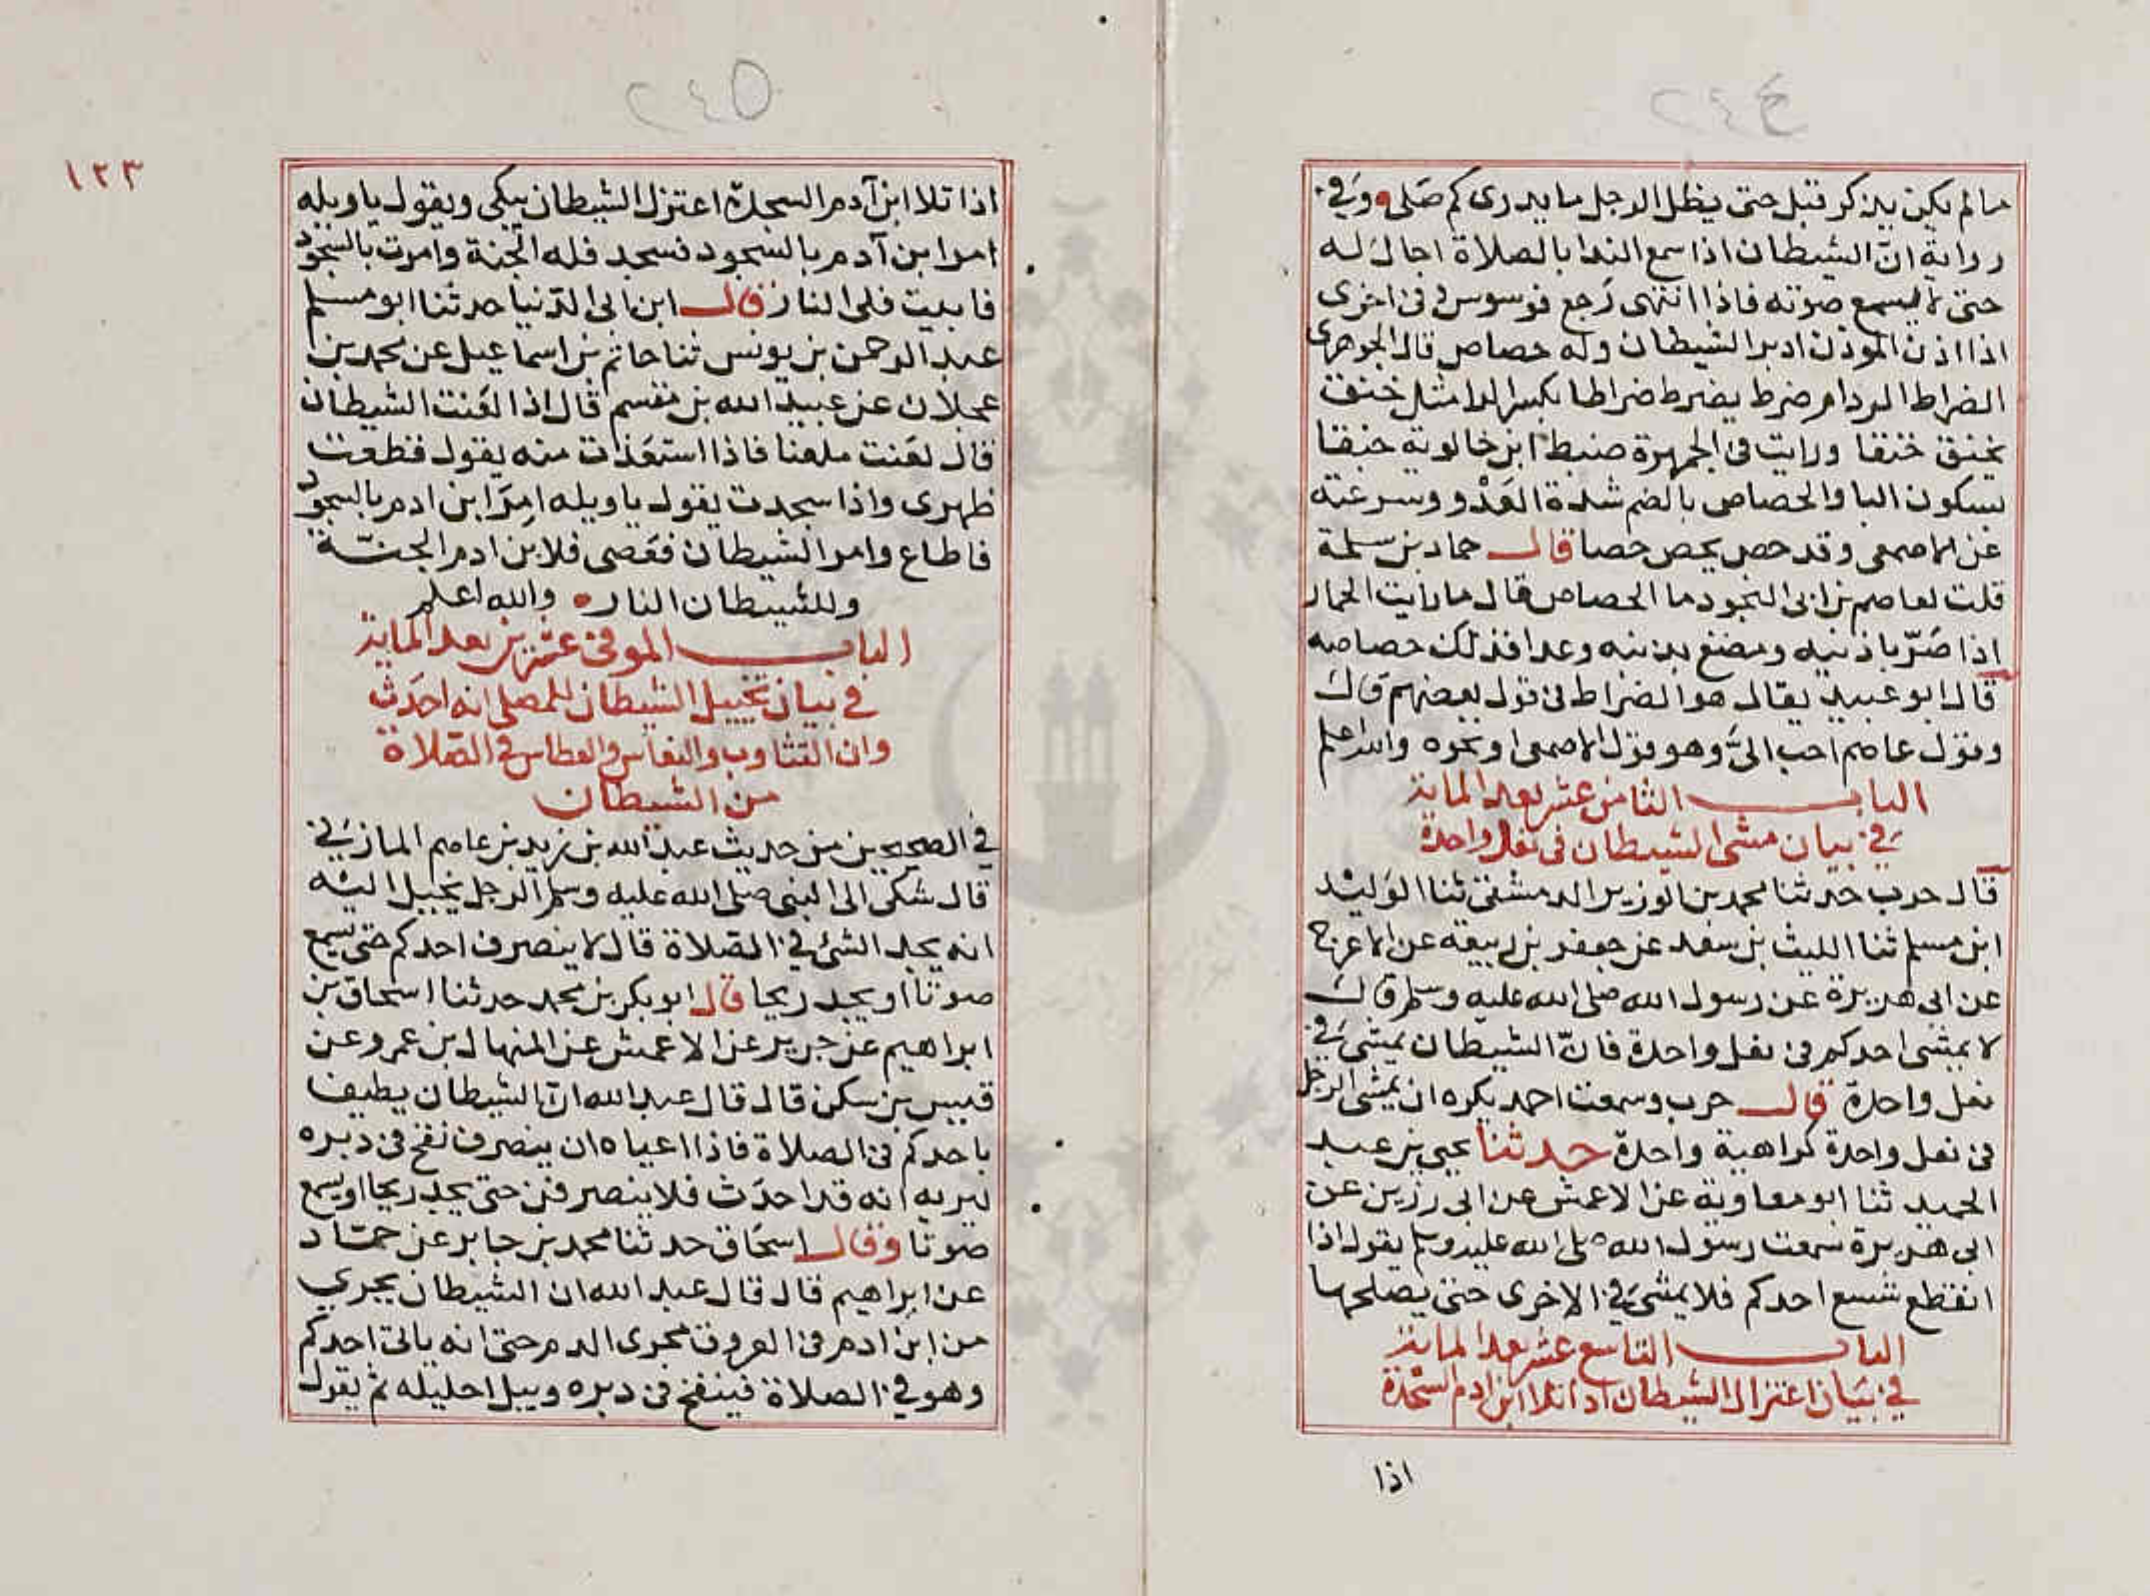 ٢٤٤
مالم يكن يذكر قبل حتى يظل الرجل ما يدرى كم صلى وفي
رواية انّ الشيطان اذا سمع الندا بالصلاة احال له
حتى لا يسمع صوته فاذا انتهى رجع فوسوس وفى اخرى
اذا اذن الموذن ادبر الشيطان وله حصاص قال الجوهرى
الضراط الردام ضرط يضرط ضراطا بكسر الرا مثل خنق
يخنق خنقا ورايت فى الجمهرة ضبط ابن خالويه خنقا
بسكون البا والحصاص بالضم شدة العَدْو وسرعته
عن الاصمعى وقد حص يحص حصا قال حماد بن سلمة
قلت لعاصم بن ابى النجود ما الحصاص قال ما رايت الحمار
اذا صَرّ باذنيه ومضغ بذنبه وعدا فذلك حصاصه
قال ابو عبيد يقال هو الضراط فى قول بعضهم قال
وقول عاصم احب الىَّ وهو قول الاصمعى او نحوه والله اعلم
الباب الثامن عشر بعد الماية
في بيان مشى الشيطان فى نعل واحدة
قال حرب حدثنا محمد بن الوزير الدمشقى ثنا الوليد
ابن مسلم ثنا الليث بن سعد عن جعفر بن ربيعة عن الاعرج
عن ابى هريرة عن رسول الله صلى الله عليه وسلم قال
لا يمشى احدكم فى نعل واحدة فانّ الشيطان يمشى في
نعل واحدة قال حرب وسمعت احمد يكره ان يمشى الرجل
فى نعل واحدة كراهية واحدة حدثنا يحيى بن عبد
الحميد ثنا ابو معاوية عن الاعمش عن ابى رزين عن
ابى هريرة سمعت رسول الله صلى الله عليه وسلم يقول اذا
انقطع شسع احدكم فلا يمشى في الاخرى حتى يصلحها
الباب التاسع عشر بعد الماية
في بيان اعتزال الشيطان اذا تلا ابن ادم السجدة
اذا
٢٤٥
١٢٣
اذا تلا ابن آدم السجدة اعتزل الشيطان يبكى ويقول ياويله
امر ابن آدم بالسجود فسجد فله الجنة وامرت بالسجود
فابيت فلى النار قال ابن ابى الدنيا حدثنا ابو مسلم
عبد الرحمن بن يونس ثنا حاتم بن اسماعيل عن محمد بن
عجلان عن عبيد الله بن مقسم قال اذا لعنت الشيطان
قال لعنت ملعنا فاذا استعذت منه يقول قطعت
ظهرى واذا سجدت يقول ياويله امر ابن ادم بالسجود
فاطاع وامر الشيطان فعصى فلابن ادم الجنّة
وللشيطان النار والله اعلم
الباب الموفى عشرين بعد الماية
في بيان تخييل الشيطان للمصلى انه احدث
وان التثاوب والنعاس والعطاس في الصّلاة
من الشيطان
في الصحيحين من حديث عبد الله بن زيد بن عاصم المازني
قال شكى الى النبى صلى الله عليه وسلم الرجل يخيل اليه
انه يجد الشئ في الصّلاة قال لا ينصرف احدكم حتى يسمع
صوتا او يجد ريحا قال ابو بكر بن محمد حدثنا اسحاق بن
ابراهيم عن جرير عن الاعمش عن المنهال بن عمرو عن
قيس بن سكن قال قال عبد الله انّ الشيطان يطيف
باحدكم فى الصلاة فاذا اعياه ان ينصرف نفخ فى دبره
ليريه انه قد احدَث فلا ينصرفن حتى يجد ريحا او يسمع
صوتا وقال اسحاق حدثنا محمد بن جابر عن حمّاد
عن ابراهيم قال قال عبد الله ان الشيطان يجري
من ابن ادم فى العروق مجرى الدم حتى انه ياتى احدكم
وهو في الصلاة فينفخ فى دبره ويبل احليله ثم يقول